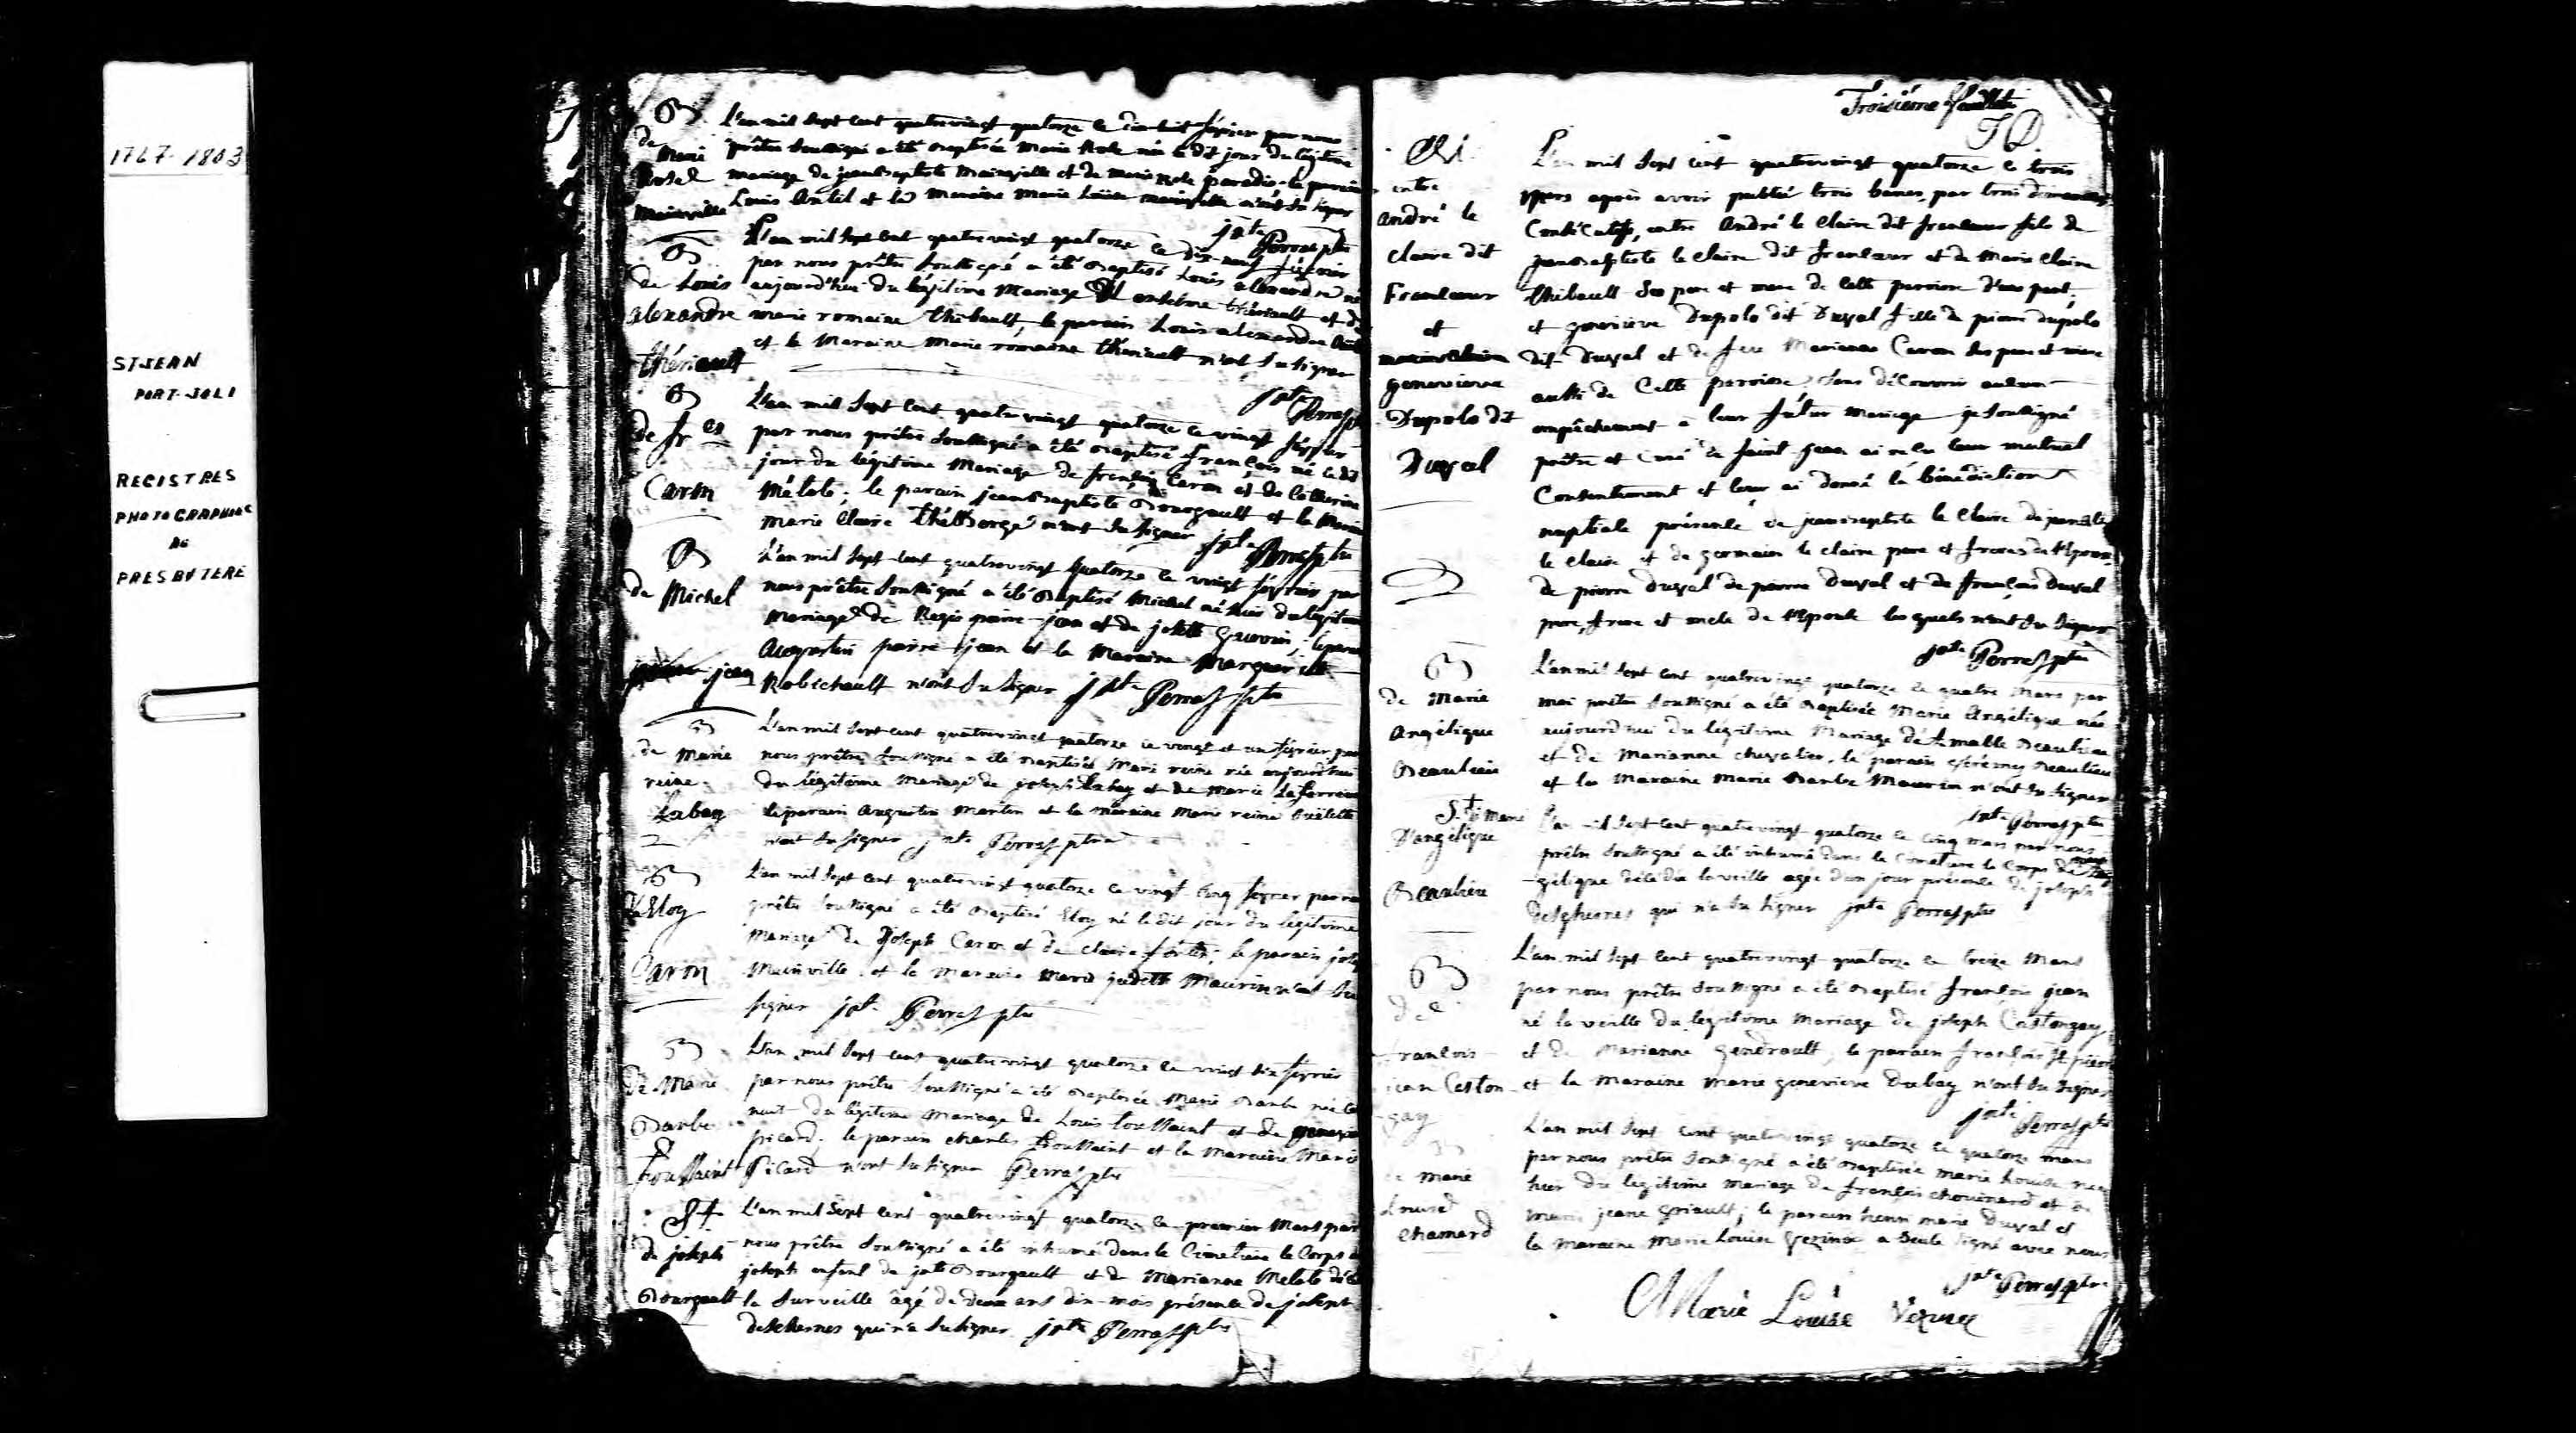 1767-1803
ST-JEAN
PORT-JOLI
REGISTRES
PHOTOGRAPHIÉS
AU
PRESBYTERE
B
de
Marie
Rosel
Mainville
L'an mil sept cent quatrevingt quatorze le dix huit février par nous
prêtre soussigné a été baptisée Marie Rose née le dit jour du légitime
mariage de jean baptiste Mainville et de marie Rose paradis, le parain
Louis Antil et la Maraine Marie Louise mainville n'ont su signer
jpte Perras ptre
B
de Louis
alexandre
thériault
L'an mil sept cent quatrevingt quatorze le dix-neuf février
par nous prêtre soussigné a été baptisé Louis alexandre né
aujourd'hui du légitime Mariage d'anselme thériault et de
marie romaine thibault, le parain Louis alexandre
et la Maraine Marie romaine thériault n'ont su signer
jpte Perras p
B
de fr es
Caron
L'an mil sept cent quatrevingt quatorze le vingt février
par nous prêtre soussigné a été baptisé françois né le dit
jour du légitime Mariage de françois Caron et de Catherine
Mélote; le parain jean baptiste Bourgault et la Marai
Marie Claire thélborge n'ont su signer jpte Perras ptre
B
de Michel
jean
L'an mil sept cent quatrevingt quatorze le vingt février par
nous prêtre soussigné a été baptisé Michel né hier du légitime
Mariage de Regis pairre-jean et de josette Gauvin, le parai
Augustin pairre-jean et la Maraine Marguerite
Robichault n'ont su signer jpte Perras ptre
B
de Marie
reine
Labay
L'an mil sept cent quatrevingt quatorze le vingt et un février par
nous prêtre soussigné a été baptisée Marie reine née aujourd'hui
du légitime Mariage de joseph Labay et de Marie
le parain Augustin Martin et la maraine Marie reine Ouëlette
n'ont su signer jpte Perras ptre
B
d'Eloy
Caron
L'an mil sept cent quatrevingt quatorze le vingt cinq février par nous
prêtre soussigné a été baptisé Eloy né le dit jour du légitime
mariage de Joseph Caron et de claire fortin; le parain jose
Mainville et la Maraine Marie judith Maurin n'ont su
signer jpte Perras ptre
B
de Marie
Barbe
toussaint
L'an mil sept cent quatrevingt quatorze le vingt six février
par nous prêtre soussigné a été baptisée Marie Barbe née la
nuit du légitime Mariage de Louis toussaint et de
picard; le parain charles toussaint et la Maraine Marie
Picard n'ont su signer Perras ptre
St
de joseph
Bourgault
L'an mil sept cent quatrevingt quatorze le premier Mars par
nous prêtre soussigné a été inhumé dans le Cimetiere le Corps de
joseph enfant de jpte Bourgault et de Marianne Melote décé
la surveille âgé de deux ans dix-mois présence de joseph
deschesnes qui n'a su signer jpte Perras ptre
Troisiéme feuillet
entre
andré le
claire dit
francœur
et
genevieve
Dupolo dit
Duval
L'an mil sept cent quatrevingt quatorze le trois
Mars après avoir publié trois bancs, par trois dimanches
Consécutifs, entre André le Claire dit francœur fils de
jean baptiste le claire dit francœur et de Marie Claire
thibault ses pere et mere de cette paroisse d'une part;
et geneviève Dupolo dit Duval fille de pierre dupolo
dit Duval et de feue Marianne Caron ses pere et mere
aussi de Cette paroisse; sans découvrir aucun
empêchement à leur fütur mariage je soussigné
prêtre et Curé de saint jean ai reçu leur mutuel
Consentement et leur ai donné la bénédiction
nuptiale présence de jean baptiste le Claire de
le Claire et de germain le claire pere et freres de l'Epoux,
de pierre Duval de pierre Duval et de françois Duval
pere, frere et oncle de l'Epouse lesquels n'ont su signer
jpte Perras ptre
B
de Marie
Angélique
Beaulieu
L'an mil sept cent quatrevingt quatorze le quatre Mars par
moi prêtre soussigné a été baptisée Marie Angélique née
aujourd'hui du légitime Mariage d'Amable Beaulieu
et de Marianne chevalier, le parain Beaulieu
et la Maraine Marie Barbe Maurin n'ont su signer
jpte Perras ptre
St de Marie
D'angelique
Beaulieu
L'an mil sept cent quatrevingt quatorze le cinq mars par nous
prêtre soussigné a été inhumé dans le Cimetiere le Corps de
-gelique décédée la veille agée d'un jour présence de joseph
deschesnes qui n'a su signer jpte Perras ptre
B
de
francois
jean Caston
gay
L'an mil sept cent quatrevingt quatorze le treize Mars
par nous prêtre soussigné a été baptisé françois jean
né la veille du légitime Mariage de joseph Castongay
et de Marianne gendrault, le parain françois St pierre
et la Maraine Marie genevieve Dubay n'ont su signer
jpte Perras ptre
B
de Marie
Louise
chamard
L'an mil sept cent quatrevingt quatorze le quatorze mars
par nous prêtre soussigné a été baptisée marie Louise née
hier du legitime mariage de françois chouinard et de
marie jeane griault; le parain henri marie Duval et
la maraine Marie Louise Vezina a seule signé avec nous
jpte Perras ptre
Marie Louise Vezina